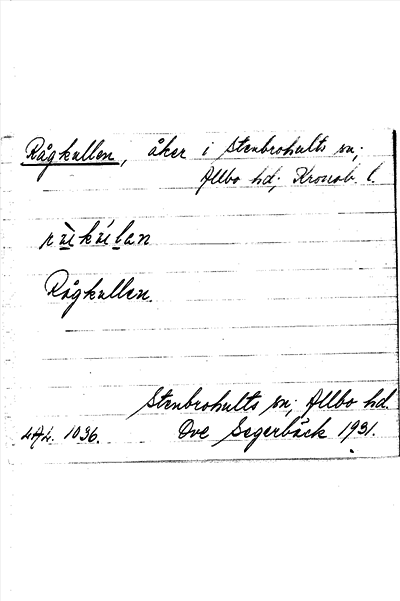 Rågkullen, åker i Stenbrohults sn;
Allbo hd; Kronob. l.
Rågkullen.
Stenbrohults sn; Allbo hd.
Ove Segerbäck 1931.
1036.